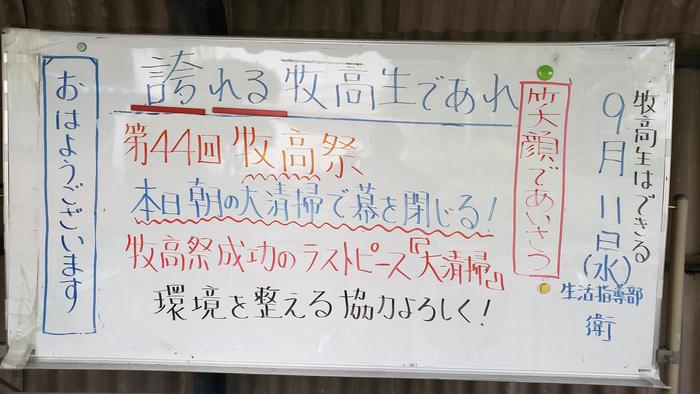 誇れる牧高生であれ
牧高生はできる
9月11日(水)
生活指導部
衛
笑顔であいさつ
第44回 牧高祭
本日朝の大清掃で幕を閉じる!
牧高祭成功のラストピース『大清掃』
環境を整える協力よろしく!
おはようございます